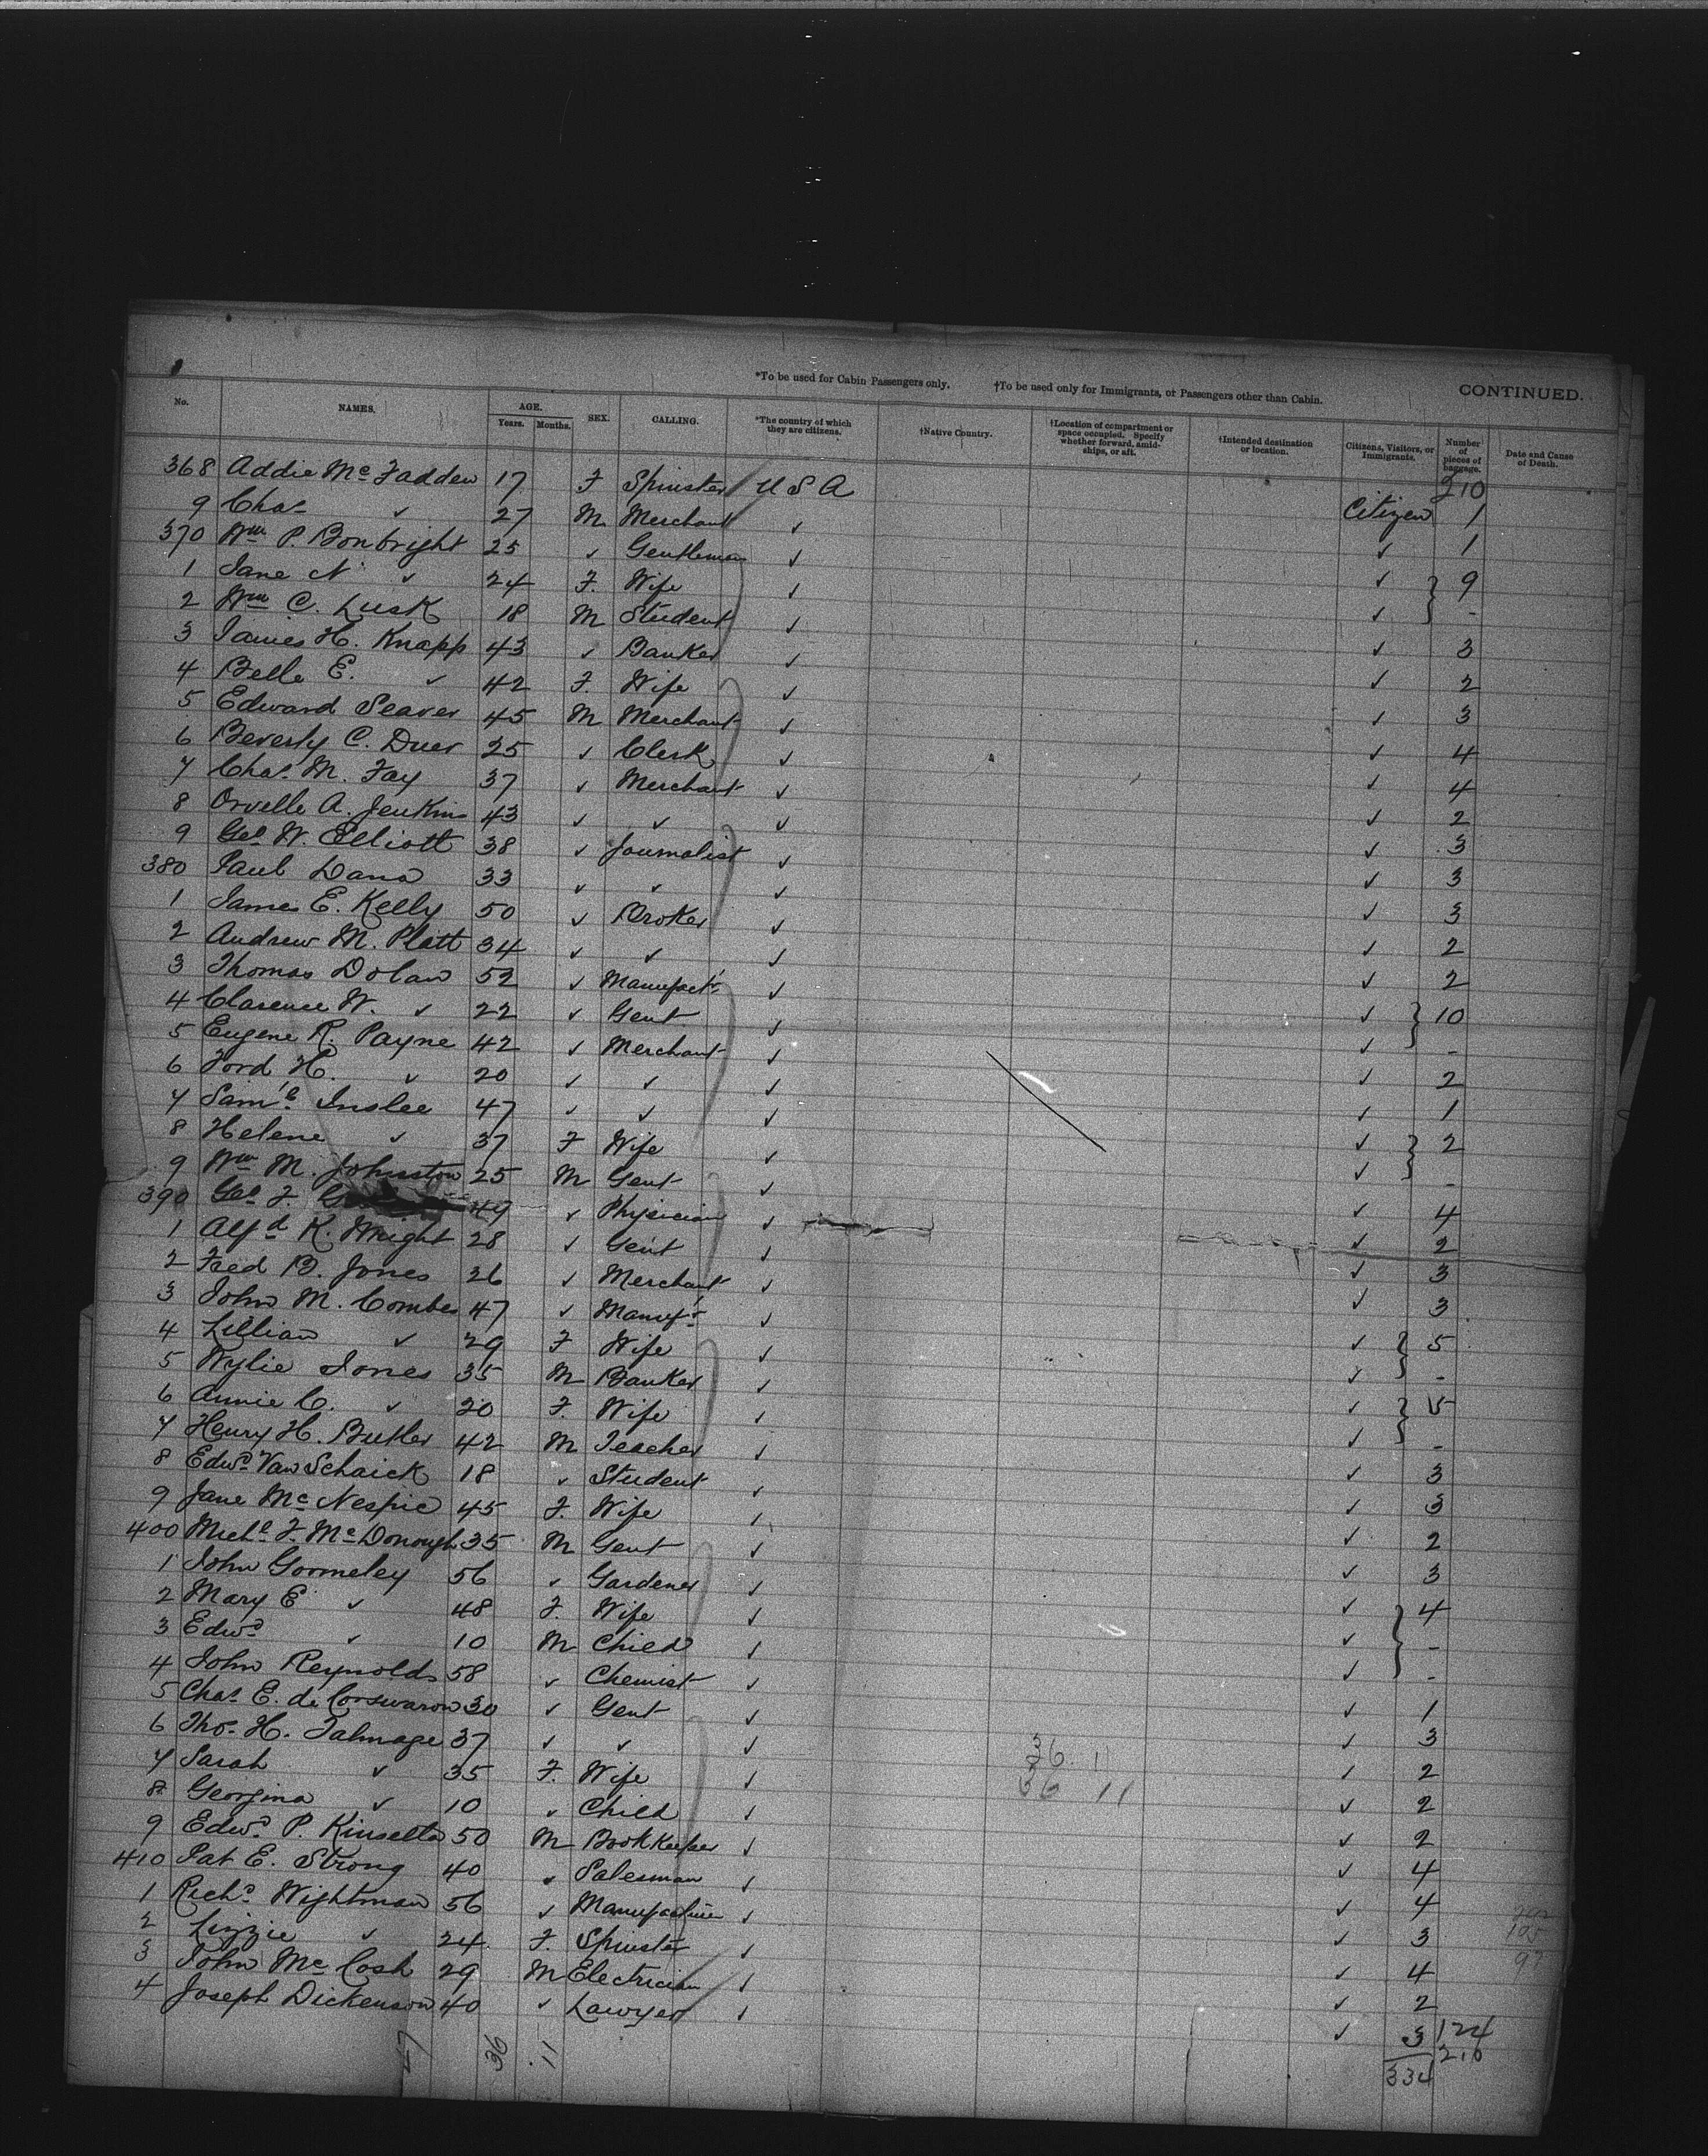 *To be used for Cabin Passengers only. †To be used only for Immigrants, or Passengers other than Cabin. CONTINUED.
No. NAMES. AGE. Years. Months. SEX. CALLING. *The country of which they are citizens. †Native Country. †Location of compartment or space occupied. Specify whether forward, amidships, or aft. †Intended destination or location. Citizens, Visitors, or Immigrants. Number of pieces of baggage. Date and Cause of Death.
210
368 Addie Mc Fadden 17 F Spinster U S A Citizen 1
9 Chas ✓ 27 M Merchant ✓ ✓ 1
370 Wm P. Bonbright 25 ✓ Gentleman ✓ ✓ } 9
1 Jane N ✓ 24 F. Wife ✓ ✓ -
2 Wm C. Lusk 18 M Student ✓ ✓ 3
3 James H. Knapp 43 ✓ Banker ✓ ✓ 2
4 Belle E. ✓ 42 F. Wife ✓ ✓ 3
5 Edward Seaver 45 M Merchant ✓ ✓ 4
6 Beverly C. Duer 25 ✓ Clerk ✓ ✓ 4
7 Chas. M. Fay 37 ✓ Merchant ✓ ✓ 2
8 Orvelle A. Jenkins 43 ✓ ✓ ✓ ✓ 3
9 Geo W. Elliott 38 ✓ Journalist ✓ ✓ 3
380 Paul Dana 33 ✓ ✓ ✓ ✓ 3
1 James E. Kelly 50 ✓ Broker ✓ ✓ 2
2 Andrew M. Platt 34 ✓ ✓ ✓ ✓ 2
3 Thomas Dolan 52 ✓ Manufactr ✓ ✓ } 10
4 Clarence W. ✓ 22 ✓ Gent ✓ ✓ -
5 Eugene R. Payne 42 ✓ Merchant ✓ ✓ 2
6 Ford H. ✓ 20 ✓ ✓ ✓ ✓ 1
7 Saml Inslee 47 ✓ ✓ ✓ ✓ } 2
8 Helene ✓ 37 F Wife ✓ ✓ -
9 Wm M. Johnston 25 M Gent ✓ ✓ 4
390 Geo F. 49 ✓ Physician ✓ ✓ 2
1 Alfd K. Wright 28 ✓ Gent ✓ ✓ 3
2 Fred B. Jones 26 ✓ Merchant ✓ ✓ 3
3 John M. Combes 47 ✓ Manufr ✓ ✓ } 5
4 Lillian ✓ 29 F Wife ✓ ✓ -
5 Wylie Jones 35 M Banker ✓ ✓ }
6 Annie C. ✓ 20 F. Wife ✓ ✓ -
7 Henry H. Butler 42 M Teacher ✓ ✓ 3
8 Edwd Van Schaick 18 ✓ Student ✓ ✓ 3
9 Jane Mc Nespie 45 F. Wife ✓ ✓ 2
400 Michl F. Mc Donough 35 M Gent ✓ ✓ 3
1 John Gormeley 56 ✓ Gardener ✓ ✓ } 4
2 Mary E ✓ 48 F. Wife ✓ ✓ -
3 Edwd ✓ 10 M Child ✓ ✓ -
4 John Reynolds 58 ✓ Chemist ✓ ✓ 1
5 Chas. E. de Corswaron 30 ✓ Gent ✓ ✓ 3
6 Thos. H. Talmage 37 ✓ ✓ ✓ 36 11 ✓ 2
7 Sarah ✓ 35 F. Wife ✓ 36 11 ✓ 2
8 Georgina ✓ 10 ✓ Child ✓ ✓ 2
9 Edwd P. Kinsella 50 M Book Keeper ✓ ✓ 4
410 Pat E. Strong 40 ✓ Salesman ✓ ✓ 4
1 Richd Wightman 56 ✓ Manufacturer ✓ ✓ 3
2 Lizzie ✓ 24 F. Spinster ✓ ✓ 4
3 John Mc Cosh 29 M Electrician ✓ ✓ 2
4 Joseph Dickenson 40 ✓ Lawyer ✓ ✓ 3
105
124
210
334
47 36 11